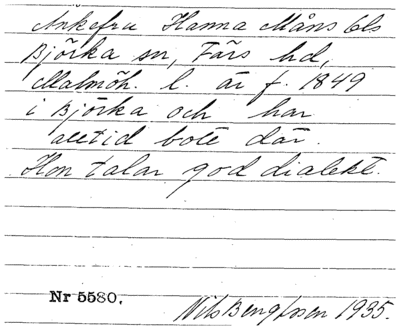 Änkefru Hanna Måns Ols
Björka sn, Färs hd,
Malmöh. l. är f. 1849
i Björka och har
alltid bott där.
Hon talar god dialekt.
Nr 5580.
Nils Bengtsson 1935.